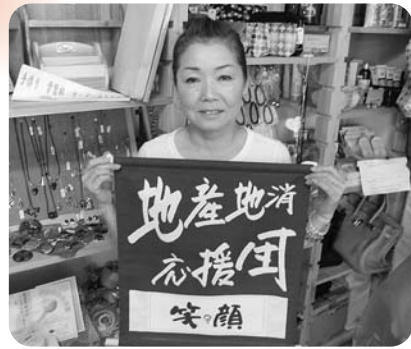 地産地消
応援団
笑顔